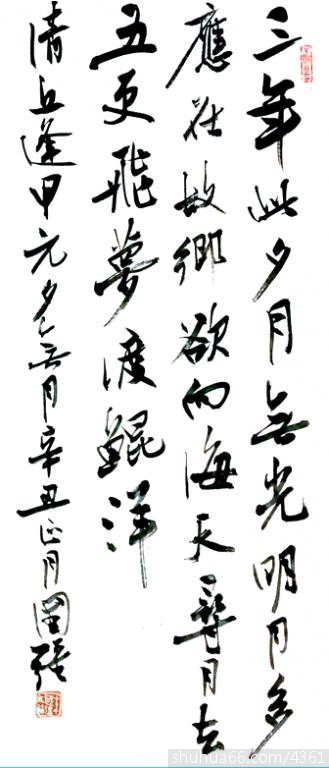 三年此夕月無光明月多
應在故鄉欲向海天尋月去
五更飛夢渡鯤洋
清丘逢甲元夕無月辛丑正月國強
shuhua66.com/4361